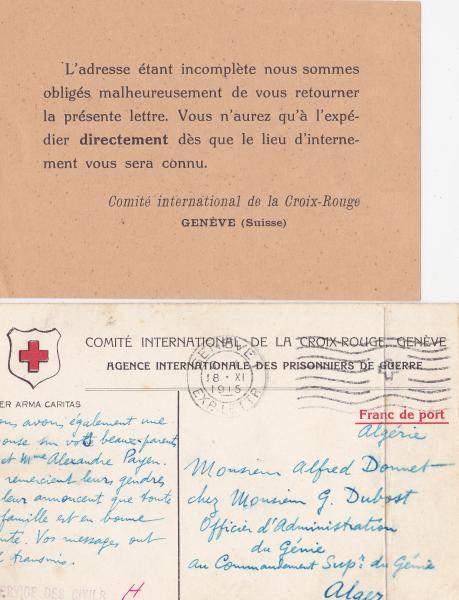 L'adresse étant incomplète nous sommes
obligés malheureusement de vous retourner
la présente lettre. Vous n'aurez qu'à l'expé-
dier directement dès que le lieu d'interne-
ment vous sera connu.
Comité international de la Croix-Rouge
GENÈVE (Suisse)
COMITÉ INTERNATIONAL DE LA CROIX-ROUGE, GENÈVE
AGENCE INTERNATIONALE DES PRISONNIERS DE GUERRE
GENÈVE
18 · XI
1915
EXP. LETTR.
ER ARMA CARITAS
Franc de port
Algérie
avons également une
sur vos beaux-parents
et Mme Alexandre Payen.
remercient leurs gendres
leur annoncent que toute
famille est en bonne
Vos messages ont
transmis.
Monsieur Alfred Donnet
chez Monsieur G. Dubost
Officier d'Administration
du Génie
au Commandement Supr du Génie
Alger
SERVICE DES CIVILS
H